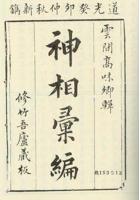 道光癸卯仲秋新鐫
雲間高味卿輯
神相彙編
修竹吾廬藏板